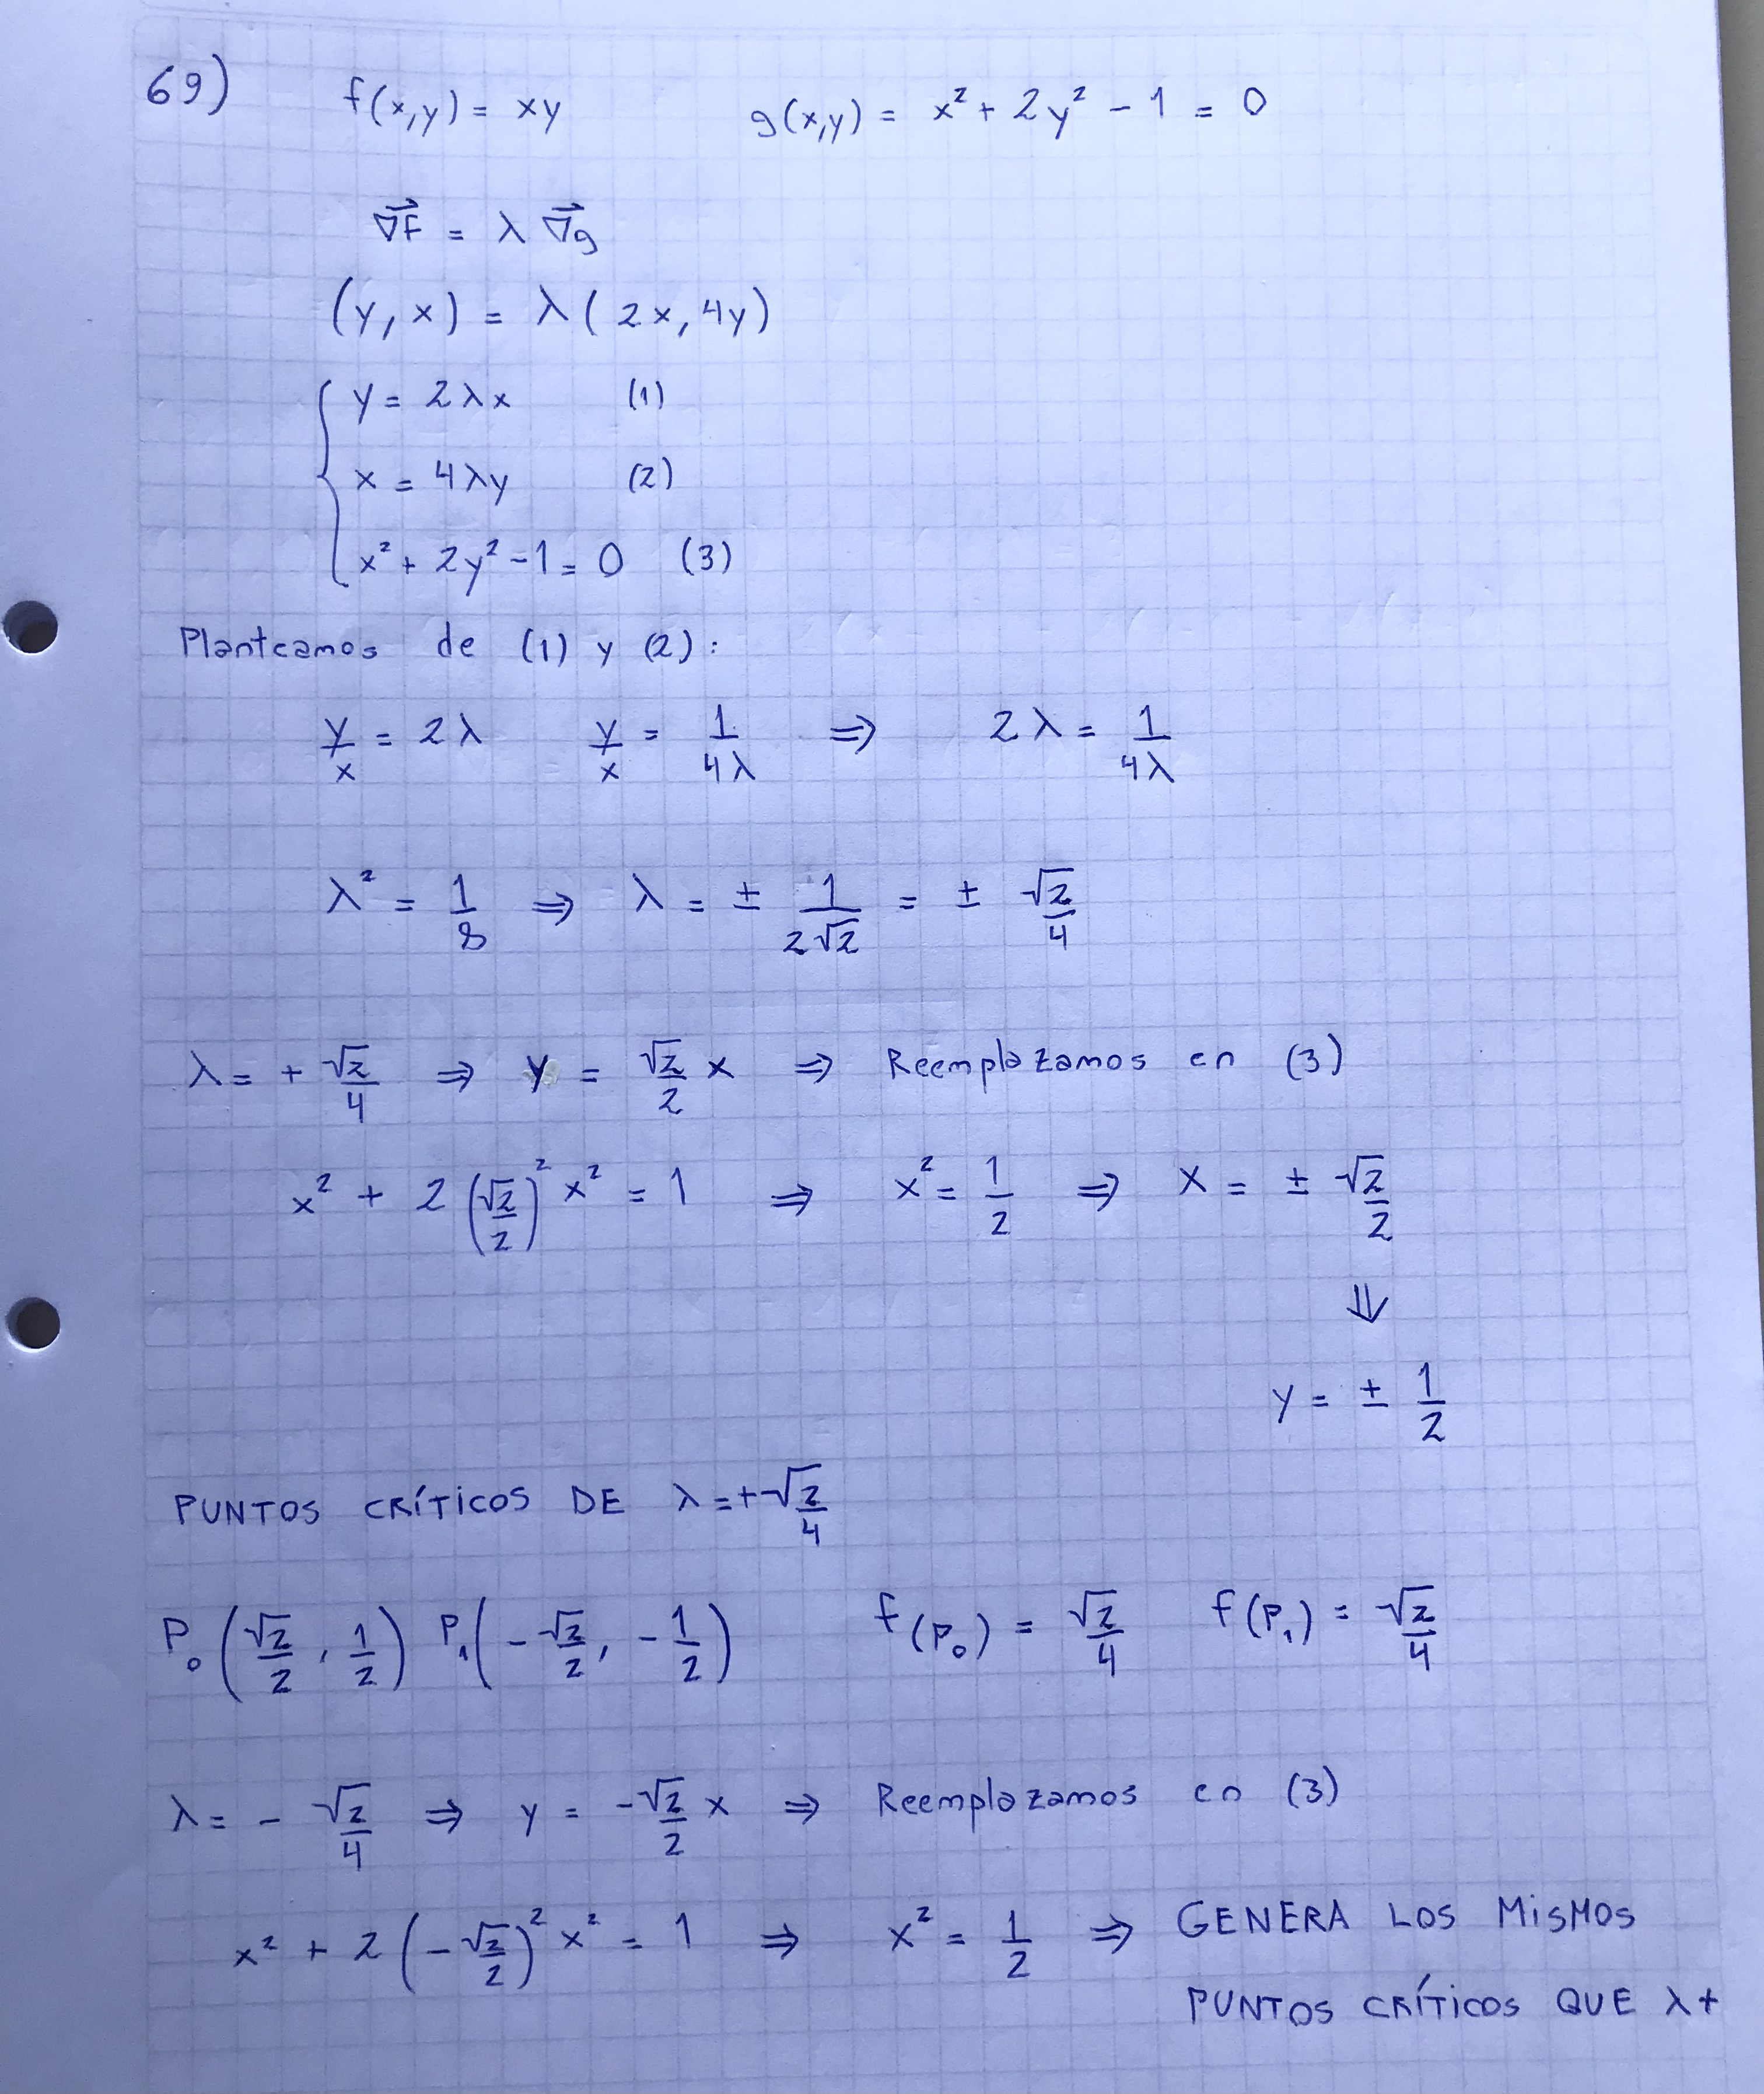 69) f(x,y) = xy g(x,y) = x² + 2y² - 1 = 0
∇F = λ ∇g
(y, x) = λ (2x, 4y)
y = 2λx (1)
x = 4λy (2)
x² + 2y² - 1 = 0 (3)
Planteamos de (1) y (2):
y/x = 2λ y/x = 1/4λ ⇒ 2λ = 1/4λ
λ² = 1/8 ⇒ λ = ± 1/2√2 = ± √2/4
λ = + √2/4 ⇒ y = √2/2 x ⇒ Reemplazamos en (3)
x² + 2 (√2/2)² x² = 1 ⇒ x² = 1/2 ⇒ x = ± √2/2
⇓
y = ± 1/2
PUNTOS CRÍTICOS DE λ = +√2/4
P₀ (√2/2, 1/2) P₁ (-√2/2, -1/2) f(P₀) = √2/4 f(P₁) = √2/4
λ = - √2/4 ⇒ y = -√2/2 x ⇒ Reemplazamos en (3)
x² + 2 (-√2/2)² x² = 1 ⇒ x² = 1/2 ⇒ GENERA LOS MISMOS
PUNTOS CRÍTICOS QUE λ+